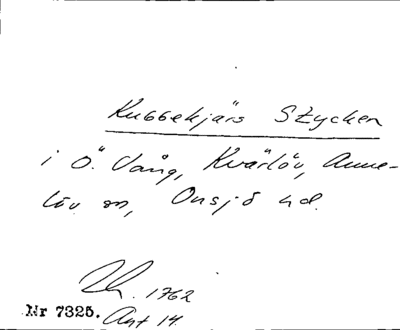 Kubbekjärs Stycken
i Ö. Vång, Kvärlöv, Anne-
löv sn, Onsjö hd.
1762
Nr 7325. Akt 14.